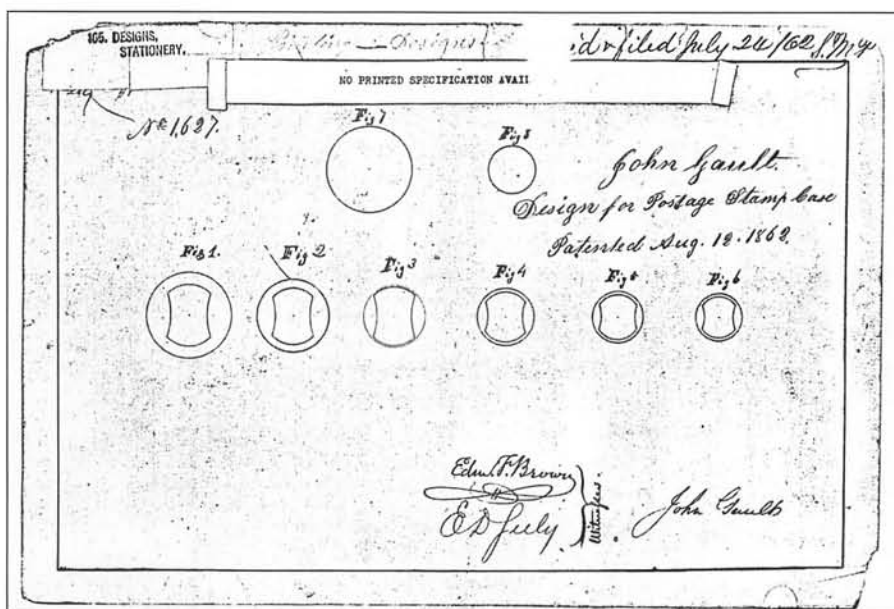 105. DESIGNS,
STATIONERY.
Designs
d & filed July 24/62
NO PRINTED SPECIFICATION AVAIL
No 1,627.
Fig 7
Fig 8
John Gault.
Design for Postage Stamp Case
Patented Aug. 12. 1862.
Fig 1.
Fig 2
Fig 3
Fig 4
Fig 5
Fig 6
Edm. F. Brown
Witnesses.
John Gault